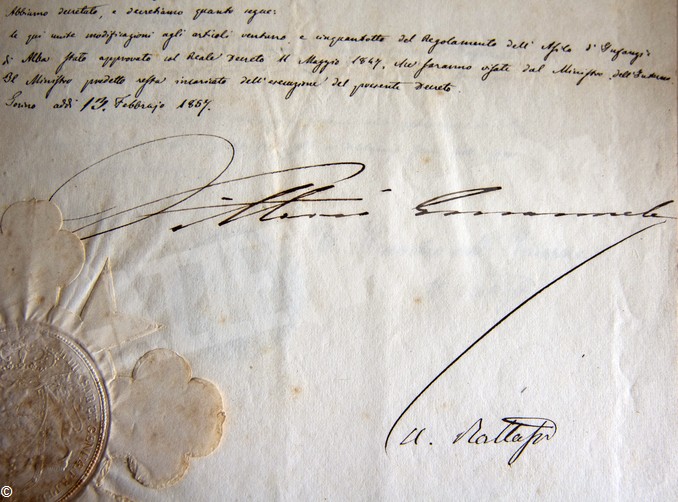 Abbiamo decretato, e decretiamo quanto segue:
le qui unite modificazioni agli articoli ventuno, e cinquantotto del Regolamento dell'Asilo d'Infanzia
di Alba stato approvato col Reale Decreto 11 Maggio 1847, che saranno visate dal Ministro dell'Interno.
Il Ministro predetto resta incaricato dell'esecuzione del presente Decreto.
Torino addì 13 Febbrajo 1857.
Vittorio Emanuele
U. Rattazzi
©